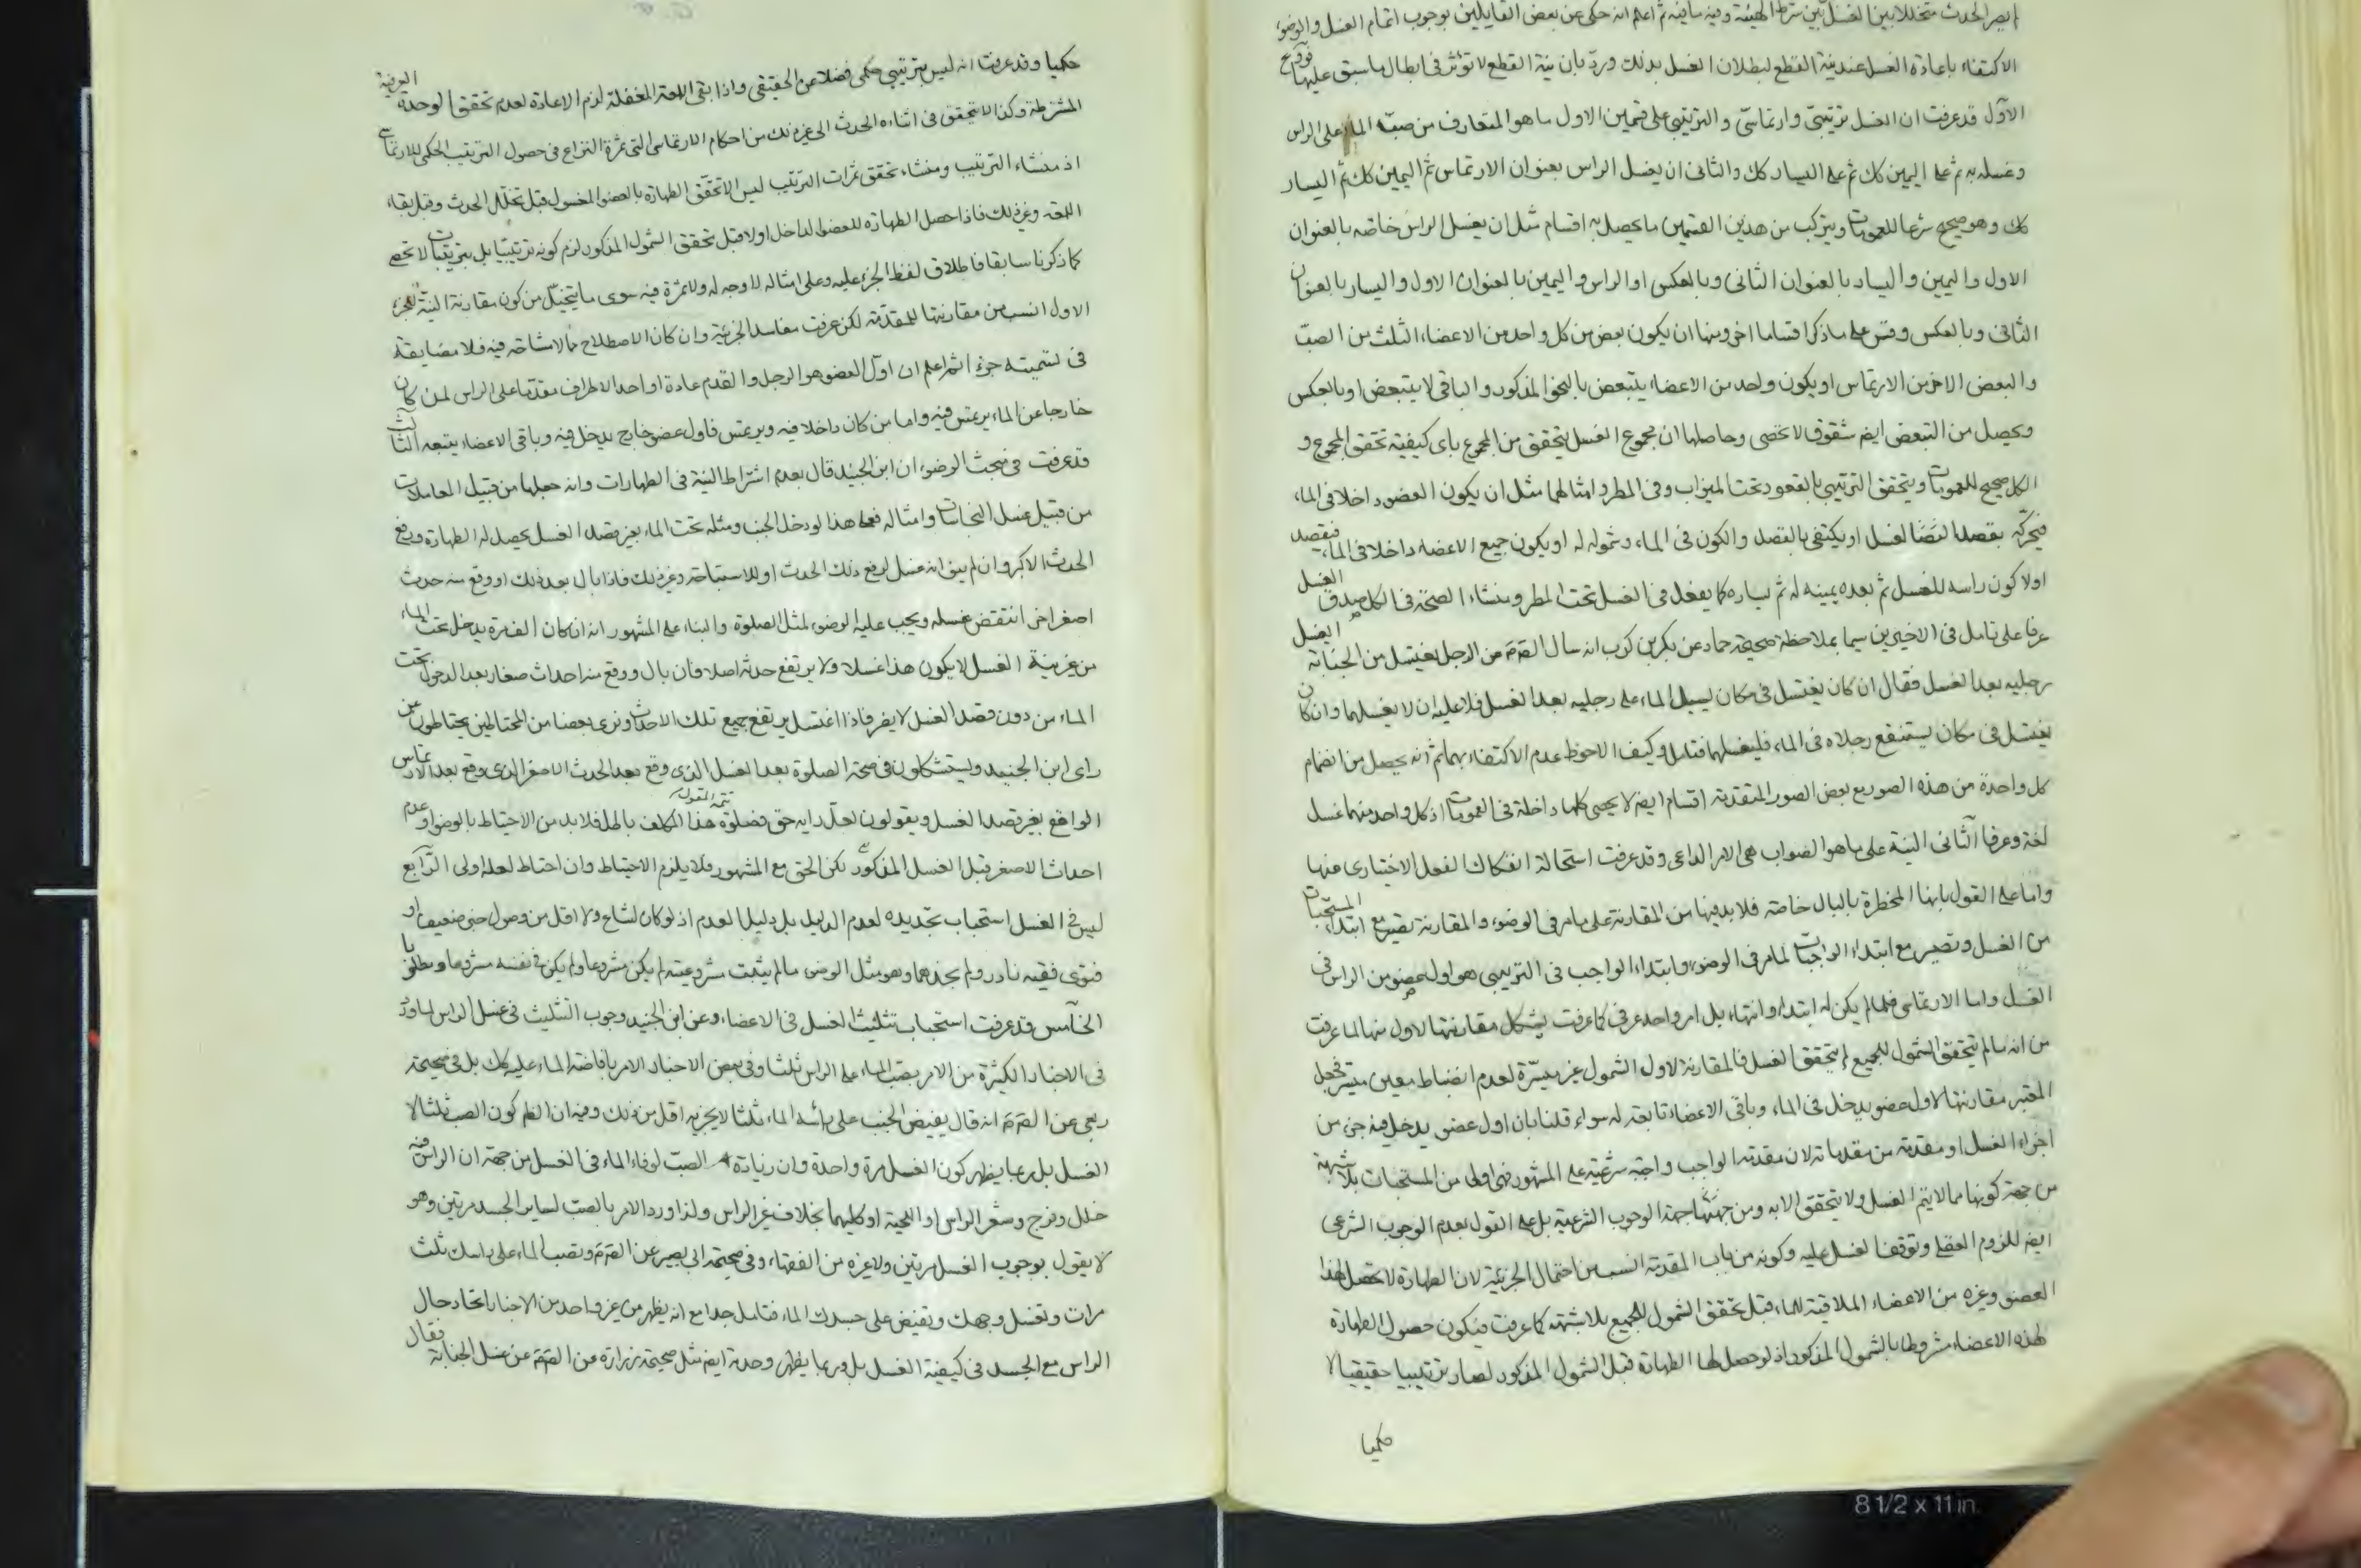 لم يصر الحدث متخللا بين الغسل بين شرط الهيئة وفيه ما فيه ثم اعلم انه حكى عن بعض القايلين بوجوب اتمام الغسل والوضوء
الاكتفاء باعادة الغسل عند نية القطع لبطلان الغسل بذلك ورد بان نية القطع لا تؤثر في ابطال ما سبق عليها فروع
الاول قد عرفت ان الغسل ترتيبي وارتماسي والترتيبي على قسمين الاول ما هو المتعارف من صب الماء على الراس
وغسله به ثم على اليمين كك ثم على اليسار كك والثاني ان يغسل الراس بعنوان الارتماس ثم اليمين كك ثم اليسار
كك وهو صحيح شرعا للعمومات ويتركب من هذين القسمين ما يحصل به اقسام مثل ان يغسل الراس خاصة بالعنوان
الاول واليمين واليسار بالعنوان الثاني وبالعكس او الراس واليمين بالعنوان الاول واليسار بالعنوان
الثاني وبالعكس وقس على ما ذكر اقساما اخر ومنها ان يكون بعض من كل واحد من الاعضاء الثلث من الصب
والبعض الاخر من الارتماس او يكون واحد من الاعضاء يتبعض بالنحو المذكور والباقي لا يتبعض او بالعكس
ويحصل من التبعض ايضا شقوق لا تحصى وحاصلها ان مجموع الغسل يتحقق من المجموع باى كيفية تحقق المجموع و
الكل صحيح للعمومات ويتحقق الترتيبي بالقعود تحت الميزاب وفي المطر وامثالهما مثل ان يكون العضو داخلا في الماء
فيحركه بقصد الغسل او يكتفى بالقصد والكون في الماء وشموله له او يكون جميع الاعضاء داخلا في الماء فيقصد
اولا كون راسه للغسل ثم بعده يمينه له ثم يساره كما يفعل في الغسل تحت المطر ومنشاء الصحة في الكل صدق الغسل
عرفا على تامل في الاخيرين سيما بملاحظة صحيحة حماد عن بكر بن كرب انه سال الصادق عن الرجل يغتسل من الجنابة ايغسل
رجليه بعد الغسل فقال ان كان يغتسل في مكان يسيل الماء على رجليه بعد الغسل فلا عليه ان لا يغسلهما وان كان
يغتسل في مكان يستنقع رجلاه في الماء فليغسلهما فتامل وكيف الاحوط عدم الاكتفاء بهما ثم انه يحصل من انضمام
كل واحدة من هذه الصور مع بعض الصور المتقدمة اقسام ايضا لا يحصى كلها داخلة في العمومات اذ كل واحد منها غسل
لغة وعرفا الثاني النية على ما هو الصواب هي الامر الداعي وقد عرفت استحالة انفكاك الفعل الاختياري عنها
واما على القول بانها المخطرة بالبال خاصة فلا بد فيها من المقارنة على ما مر في الوضوء والمقارنة تصير مع ابتداء المستحبات
من الغسل وتصير مع ابتداء الواجبات لما مر في الوضوء وابتداء الواجب في الترتيبي هو اول عضو من الراس في
الغسل واما الارتماسي فلما لم يكن له ابتداء وانتهاء بل امر واحد عرفي كما عرفت يشكل مقارنتها لاول منها لما عرفت
من انه ما لم يتحقق الشمول للجميع لم يتحقق الغسل فالمقارنة لاول الشمول غير ميسرة لعدم انضباط معين ميسر فجعل
المعتبر مقارنتها لاول عضو يدخل في الماء وباقي الاعضاء تابعة له سواء قلنا بان اول عضو يدخل فيه جزء من
اجزاء الغسل او مقدمة من مقدماته لان مقدمة الواجب واجبة شرعية على المشهور فهي اولى من المستحبات بلا شبهة
من جهة كونها مما لا يتم الغسل ولا يتحقق الا به ومن جهتها جهة الوجوب الشرعية بل على القول بعدم الوجوب الشرعي
ايضا للزوم العقلي وتوقف الغسل عليه وكونه من باب المقدمة انسب من احتمال الجزئية لان الطهارة لا تحصل لهذا
العضو وغيره من الاعضاء الملاقية للماء قبل تحقق الشمول للجميع بلا شبهة كما عرفت فيكون حصول الطهارة
لهذه الاعضاء مشروطا بالشمول المذكور اذ لو حصل لها الطهارة قبل الشمول المذكور لصار ترتيبيا حقيقيا لا
حكميا
حكميا وقد عرفت انه ليس بترتيبي حكمي فضلا عن الحقيقي واذا بقي اللمعة المغفلة لزم الاعادة لعدم تحقق الوحدة العرفية
المشترطة وكذا لا يتحقق في اثناءه الحدث الى غير ذلك من احكام الارتماسي التي ثمرة النزاع في حصول الترتيب الحكمي للارتماسي
اذ منشاء الترتيب ومنشاء تحقق ثمرات الترتيب ليس الا تحقق الطهارة بالعضو المغسول قبل تخلل الحدث وقبل بقاء
اللمعة وغير ذلك فاذا حصل الطهارة للعضو الداخل اولا قبل تحقق الشمول المذكور لزم كونه ترتيبيا بل ترتيبات لا تحصى
كما ذكرنا سابقا فاطلاق لفظ الجزء عليه وعلى امثاله لا وجه له ولا ثمرة فيه سوى ما يتخيل من كون مقارنة النية للجزء
الاول انسب من مقارنتها للمقدمة لكن عرفت مفاسد الجزئية وان كان الاصطلاح مما لا مشاحة فيه فلا مضايقة
في تسميته جزء ثم اعلم ان اول العضو هو الرجل والقدم عادة او احد الاطراف مقدما على الراس لمن كان
خارجا عن الماء يرتمس فيه واما من كان داخلا فيه ويرتمس فاول عضو خارج يدخل فيه وباقي الاعضاء يتبعه الثالث
قد عرفت في مبحث الوضوء ان ابن الجنيد قال بعدم اشتراط النية في الطهارات وانه جعلها من قبيل المعاملات
من قبيل غسل النجاسات وامثاله فعلى هذا لو دخل الجنب ومثله تحت الماء بغير قصد الغسل يحصل له الطهارة ورفع
الحدث الاكبر وان لم ينو انه غسل لرفع ذلك الحدث او للاستباحة وغير ذلك فاذا بال بعد ذلك او وقع منه حدث
اصغر اخر انتقض غسله ويجب عليه الوضوء لمثل الصلوة والبناء على المشهور انه ان كان الف مرة يدخل تحت الماء
من غير نية الغسل لا يكون هذا غسلا ولا يرتفع حدثه اصلا فان بال ووقع منه احداث صغار بعد الدخول تحت
الماء من دون قصد الغسل لا يضر فاذا اغتسل يرتفع جميع تلك الاحداث ونرى بعضا من المحتاطين يحتاطون عن
راى ابن الجنيد ويستشكلون في صحة الصلوة بعد الغسل الذي وقع بعد الحدث الاصغر الذي وقع بعد الارتماس
الواقع بغير قصد الغسل ويقولون لعل رايه حق فصلوة هذا المكلف باطلة فلا بد من الاحتياط بالوضوء او عدم
تتمة المقول
احداث الاصغر قبل الغسل المذكور لكن الحق مع المشهور فلا يلزم الاحتياط وان احتاط لعله اولى الرابع
ليس في الغسل استحباب تجديده لعدم الدليل بل دليل العدم اذ لو كان لشاع ولا اقل من وصول خبر ضعيف او
فتوى فقيه نادر ولم نجدهما وهو مثل الوضوء ما لم يثبت مشروعيته لم يكن مشروعا ولم يكن في نفسه مشروعا ومطلوبا
الخامس قد عرفت استحباب تثليث الغسل في الاعضاء وعن ابن الجنيد وجوب التثليث في غسل الراس لما ورد
في الاخبار الكثيرة من الامر بصب الماء على الراس ثلثا وفي بعض الاخبار الامر بافاضة الماء عليه كك بل في صحيحة
ربعي عن الصادق انه قال يفيض الجنب على راسه الماء ثلثا لا يجزيه اقل من ذلك وفيه ان الظاهر كون الصب ثلثا لا
الغسل بل ربما يظهر كون الغسل مرة واحدة وان زيادة الصب لوفاء الماء في الغسل من جهة ان الراس فيه
خلل وفرج وشعر الراس او اللحية او كليهما بخلاف غير الراس ولذا ورد الامر بالصب لساير الجسد مرتين وهو
لا يقول بوجوب الغسل مرتين ولا غيره من الفقهاء وفي صحيحة ابي بصير عن الصادق وتصب الماء على راسك ثلث
مرات وتغسل وجهك وتفيض على جسدك الماء فتامل جدا مع انه يظهر من غير واحد من الاخبار اتحاد حال
الراس مع الجسد في كيفية الغسل بل وربما يظهر وحدة ايضا مثل صحيحة زرارة عن الصادق عن غسل الجنابة فقال